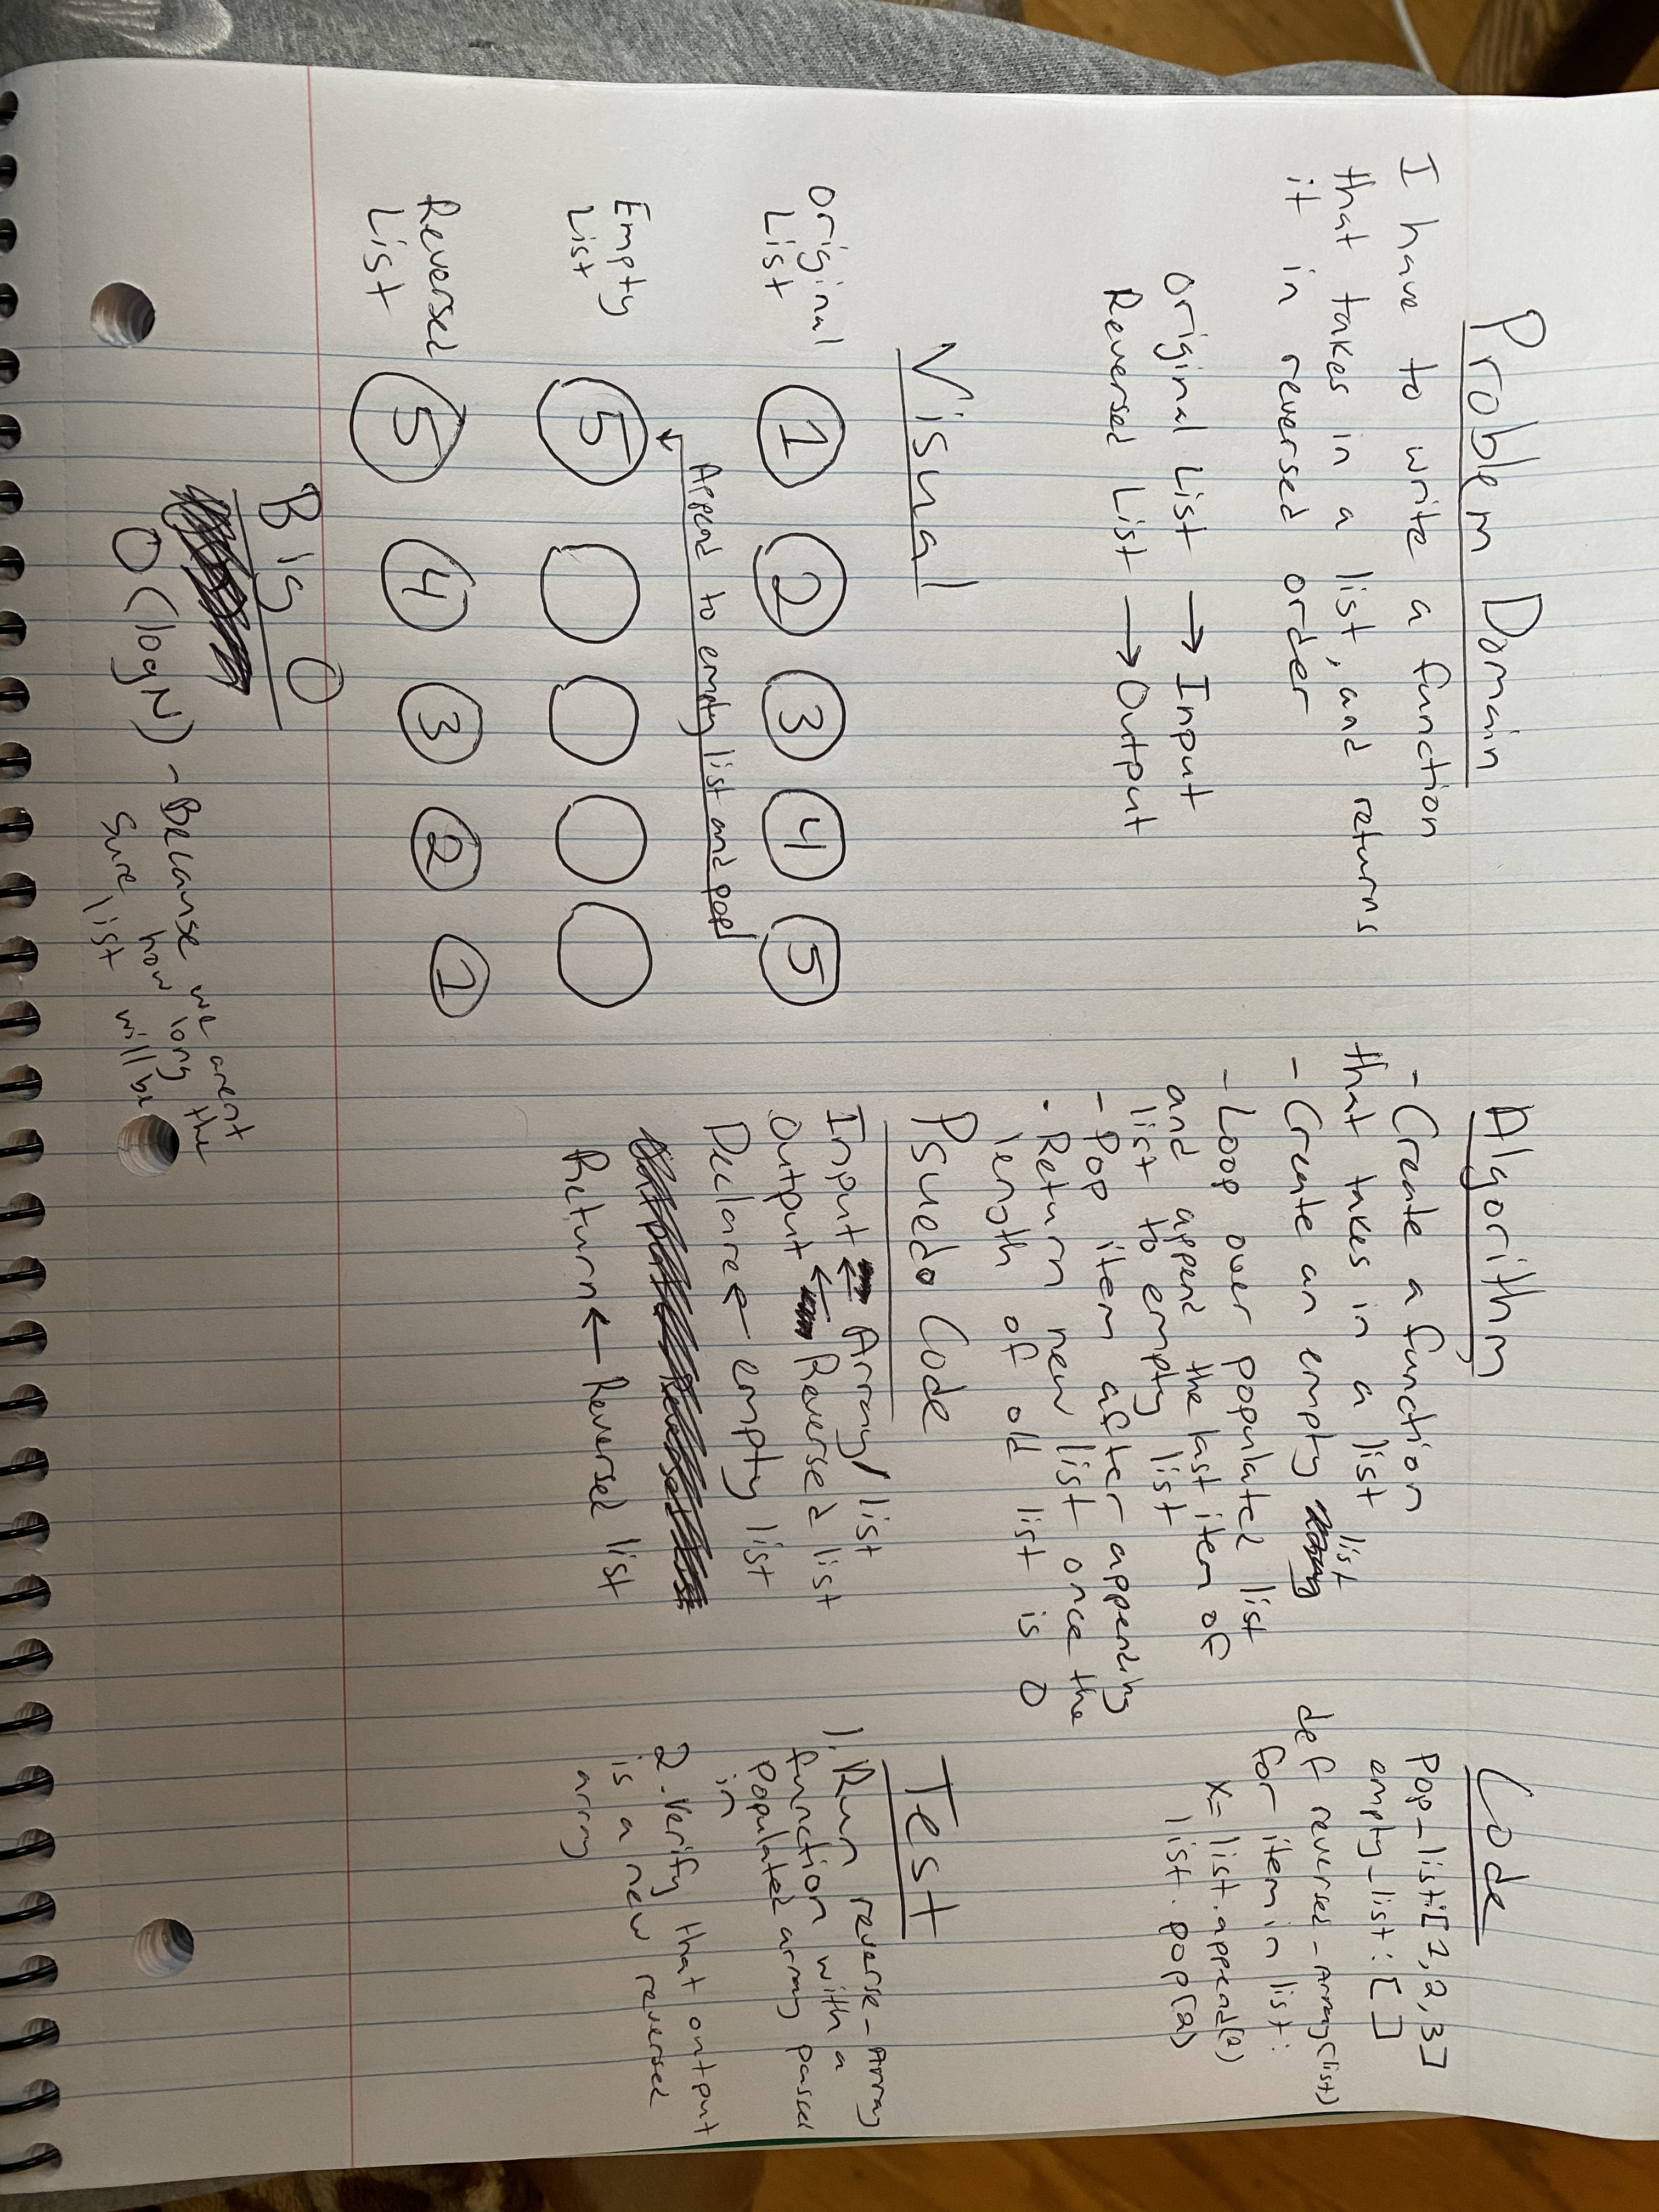 Problem Domain
I have to write a function
that takes in a list, and returns
it in reversed order
Original List → Input
Reversed List → Output
Visual
Original
List
1 2 3 4 5
Append to empty list and pop
Empty
List
5
Reversed
List
5 4 3 2 1
Big O
O(logN) - Because we arent
sure how long the
list will be
Algorithm
- Create a function
that takes in a list
- Create an empty list
- Loop over populated list
and append the last item of
list to empty list
- Pop item after appending
- Return new list once the
length of old list is 0
Psuedo Code
Input ← Array/list
Output ← Reversed list
Declare ← empty list
Return ← Reversed list
Code
Pop_list:[1,2,3]
empty_list:[]
def reverse-Array(list)
for item in list:
x= list.append(2)
list.pop(2)
Test
1. Run reverse-Array
function with a
populated array passed
in
2. Verify that output
is a new reversed
array